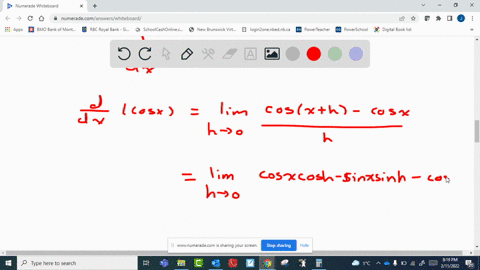 numerade.com/answers/whiteboard/
BMO Bank of Montre... RBC Royal Bank - S... SchoolCashOnline.c... New Brunswick Virt... loginZone.nbed.nb.ca PowerTeacher PowerSchool Digital Book list
dx
d/dx (cosx) = lim h→0 (cos(x+h) - cosx)/h
= lim h→0 cosxcosh-sinxsinh - cos
www.numerade.com is sharing your screen. Stop sharing Hide
Type here to search
1°C
8:19 PM
2/11/2022